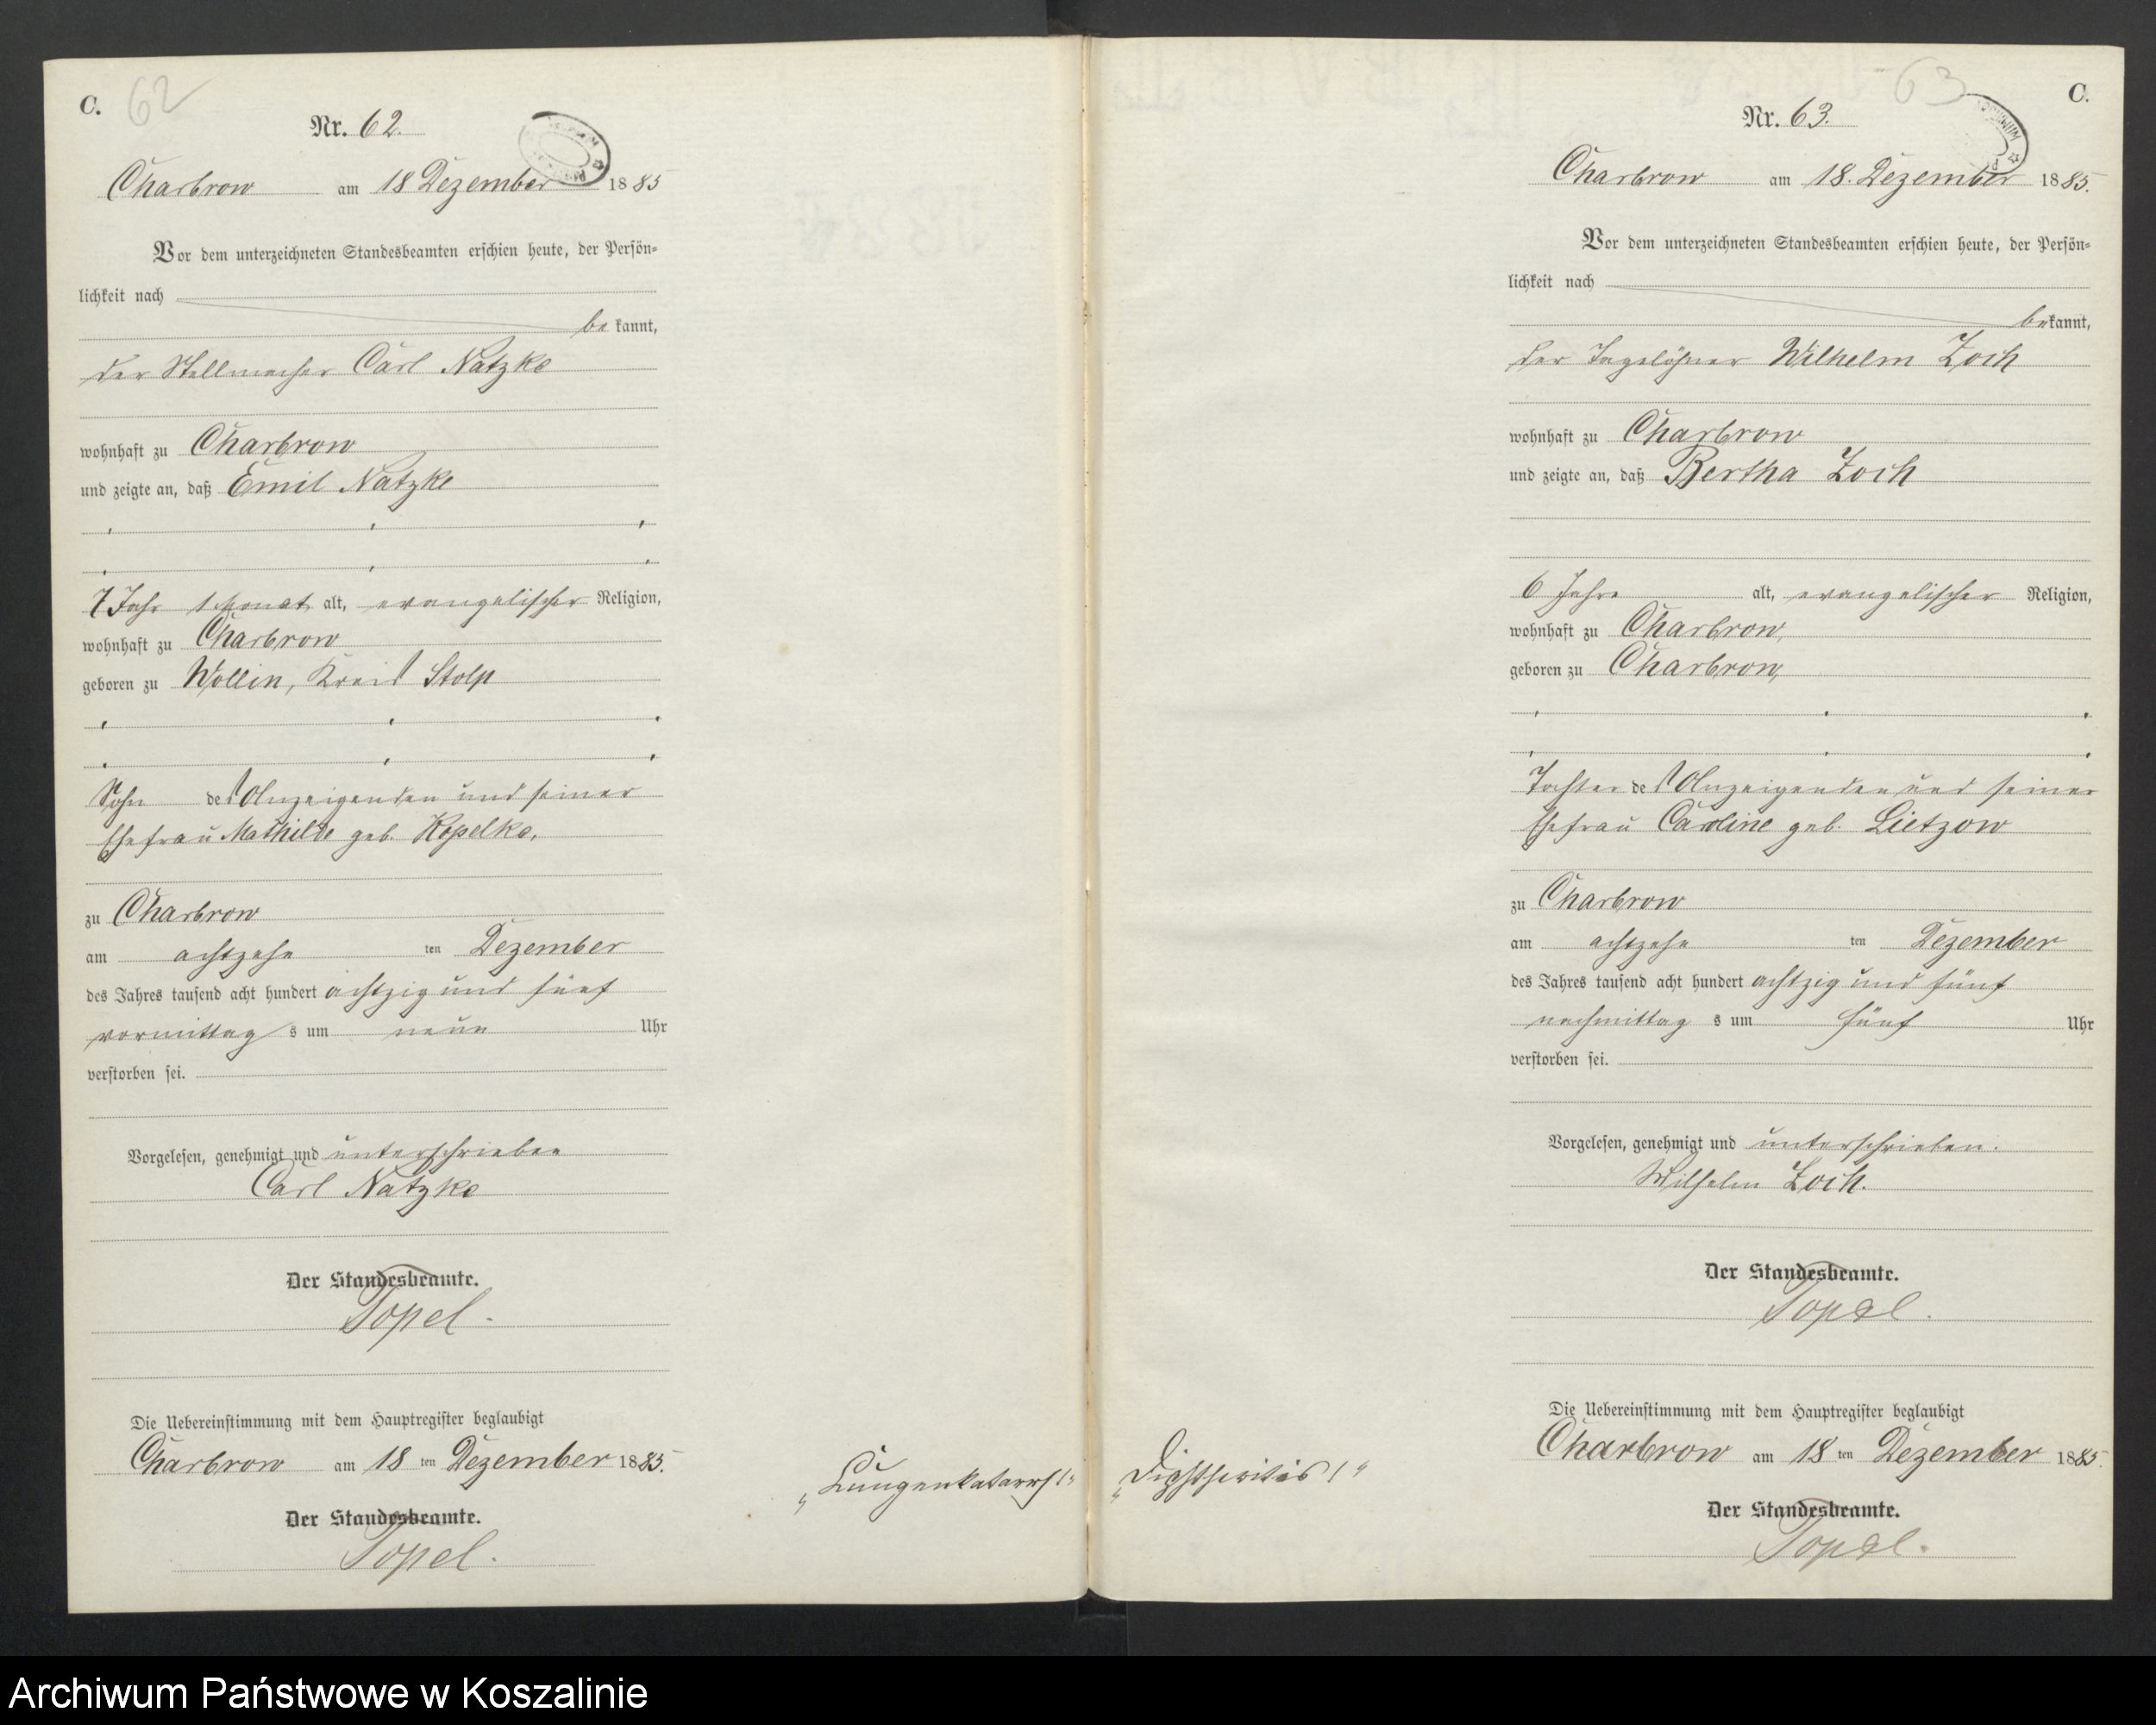 C. 62
Nr. 62.
Charbrow am 18 Dezember 1885
Vor dem unterzeichneten Standesbeamten erschien heute, der Persön=
lichkeit nach
be kannt,
der Stellmacher Carl Natzke
wohnhaft zu Charbrow
und zeigte an, daß Emil Natzke
7 Jahr 1 Monat alt, evangelischer Religion,
wohnhaft zu Charbrow
geboren zu Wollin, Kreis Stolp
Sohn des Anzeigenden und seiner
Ehefrau Mathilde geb. Kopelke,
zu Charbrow
am achtzehn ten Dezember
des Jahres tausend acht hundert achtzig und fünf
vormittag s um neun Uhr
verstorben sei.
Vorgelesen, genehmigt und unterschrieben
Carl Natzke
Der Standesbeamte.
Topel.
Die Uebereinstimmung mit dem Hauptregister beglaubigt
Charbrow am 18 ten Dezember 1885.
Der Standesbeamte.
Topel.
„Lungenkatarrh!“
63 C.
Nr. 63.
Charbrow am 18. Dezember 1885.
Vor dem unterzeichneten Standesbeamten erschien heute, der Persön=
lichkeit nach
bekannt,
der Tagelöhner Wilhelm Zoch
wohnhaft zu Charbrow
und zeigte an, daß Bertha Zoch
6 Jahre alt, evangelischer Religion,
wohnhaft zu Charbrow,
geboren zu Charbrow,
Tochter des Anzeigenden und seiner
Ehefrau Caroline geb. Lietzow
zu Charbrow
am achtzehn ten Dezember
des Jahres tausend acht hundert achtzig und fünf
nachmittag s um fünf Uhr
verstorben sei.
Vorgelesen, genehmigt und unterschrieben.
Wilhelm Zoch.
Der Standesbeamte.
Topel.
Die Uebereinstimmung mit dem Hauptregister beglaubigt
Charbrow am 18 ten Dezember 1885.
Der Standesbeamte.
Topel.
„Diphtheritis!“
Archiwum Państwowe w Koszalinie